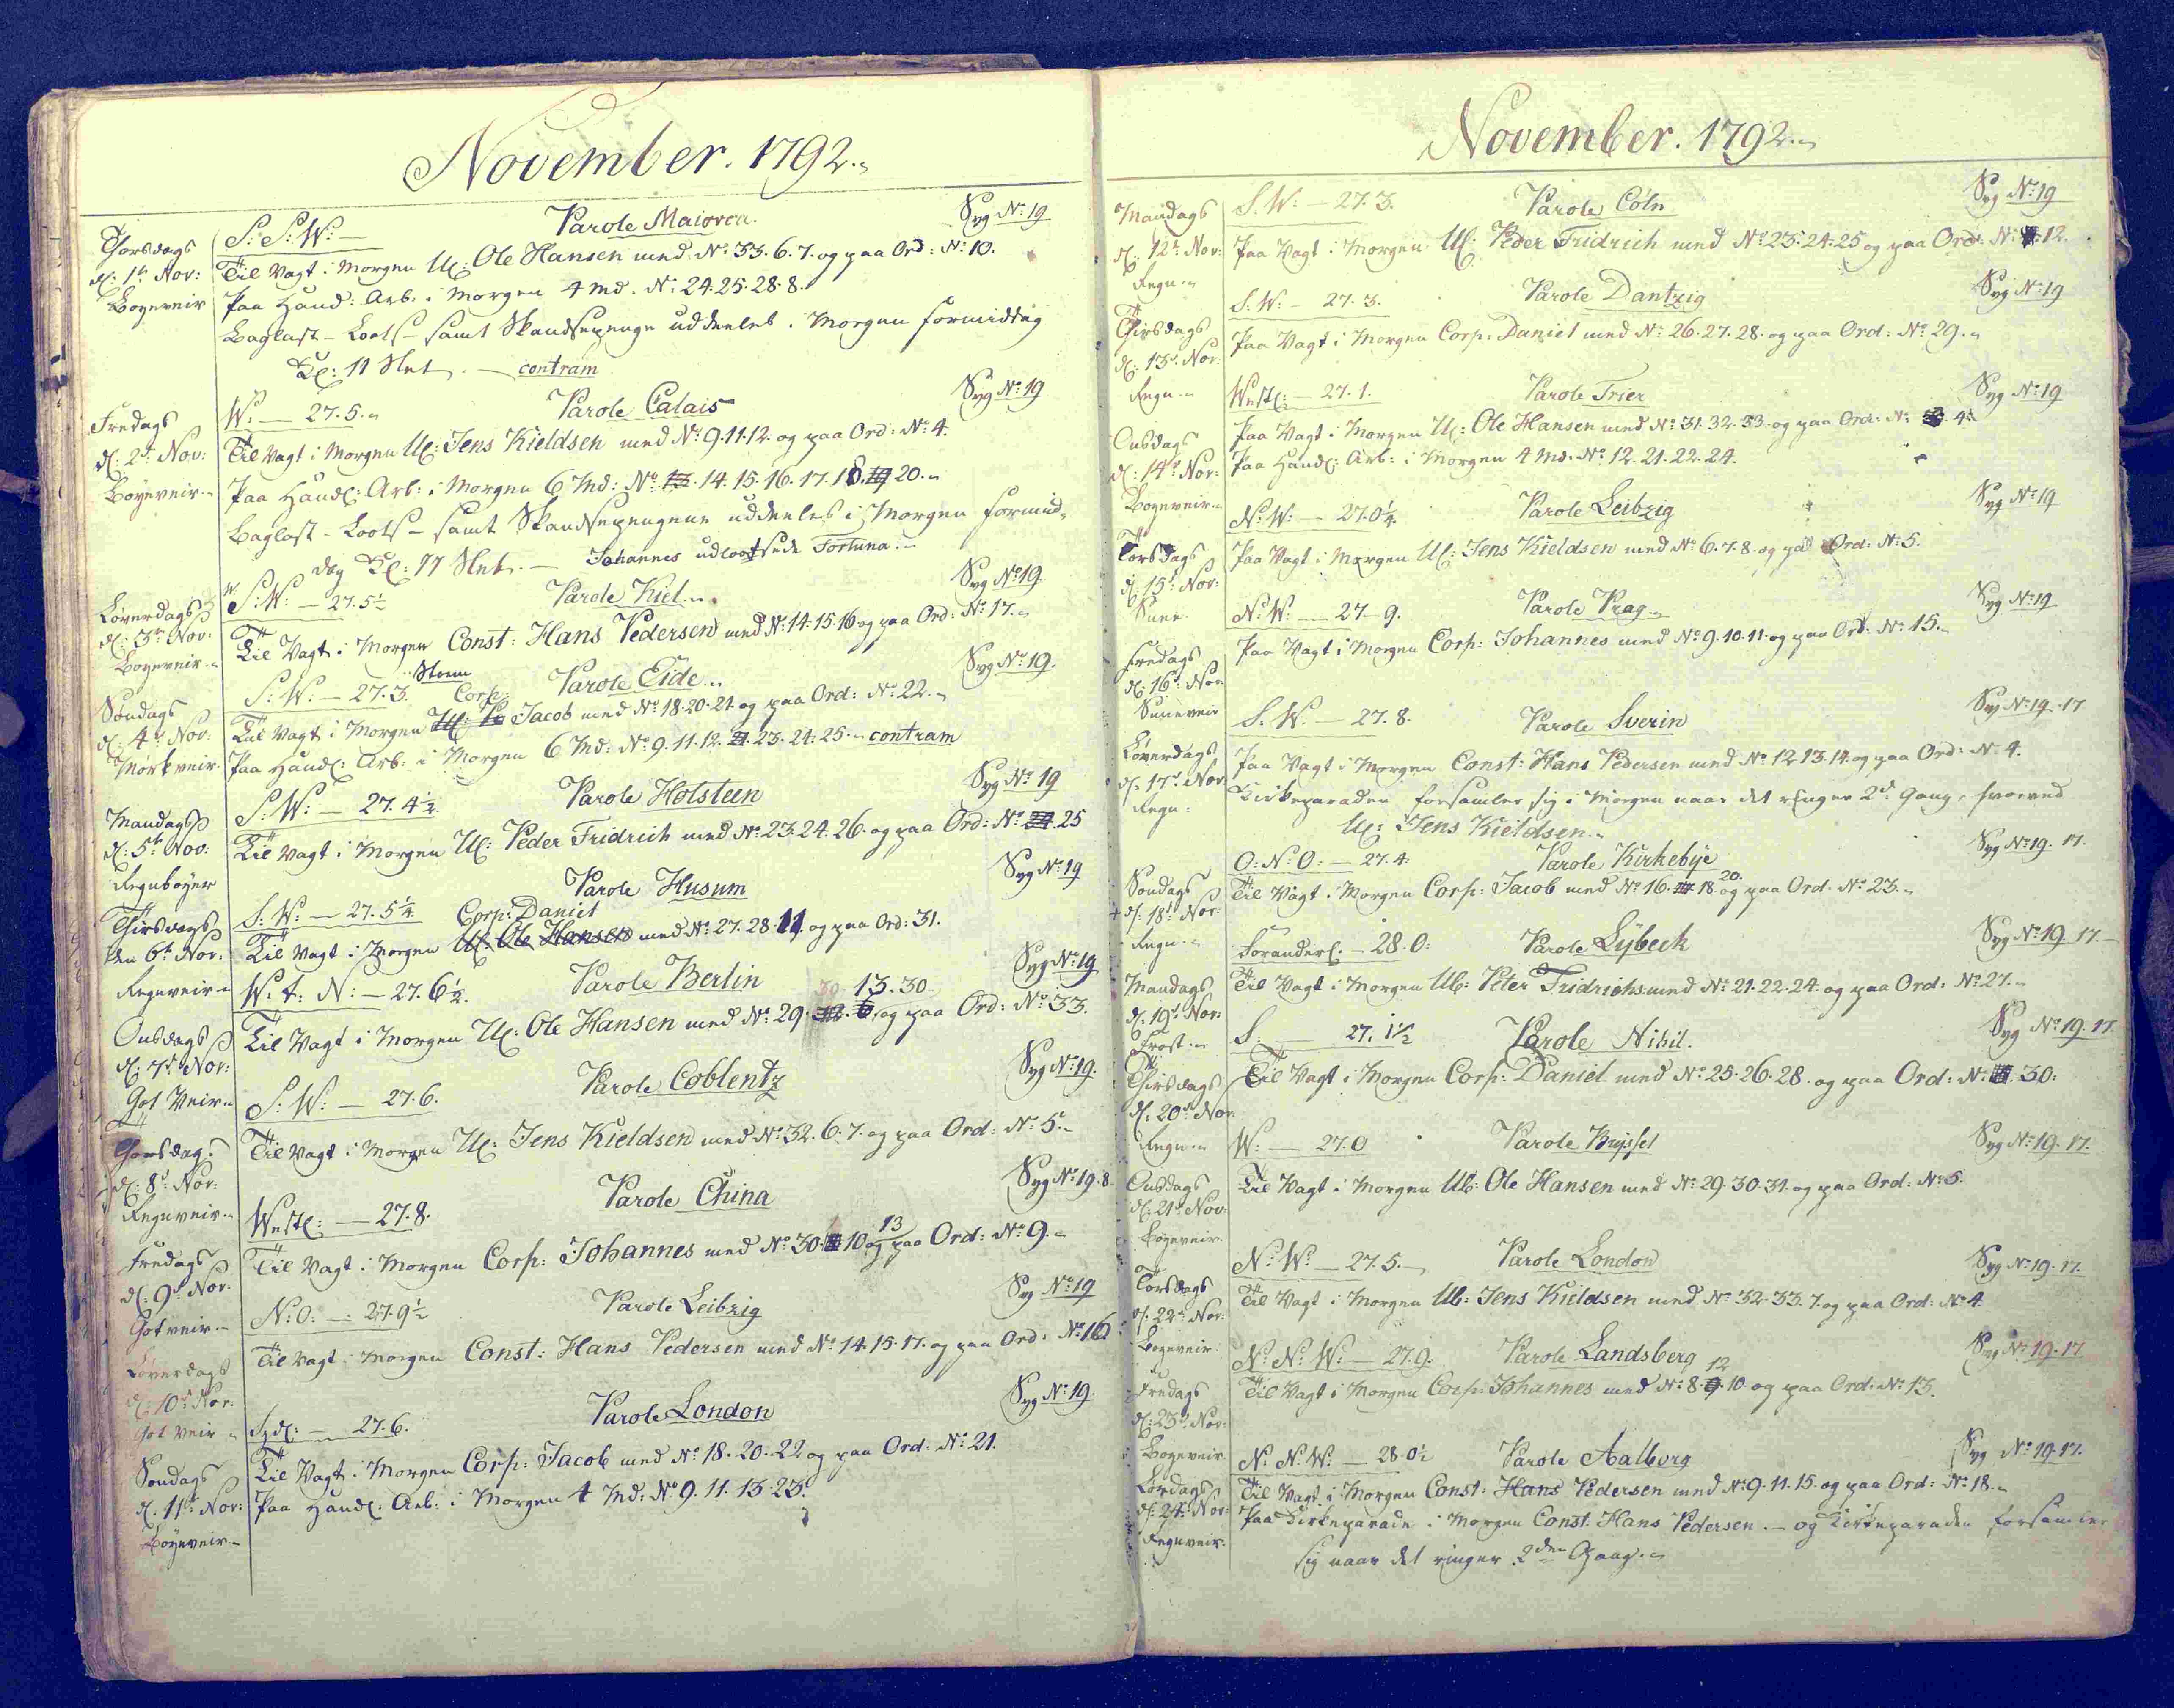 November. 1792.
Thorsdags
d: 1te Nov:
Bøyeveir
S: S: W: —
Parole Maiorca.
Syg No: 19
Til Vagt i Morgen Uc: Ole Hansen med No: 33. 6. 7. og paa Ord: No: 10.
Paa Hand: Arb: i Morgen 4 Md. No: 24. 25. 28. 8.
Baglast - Loots - samt Skandsepenge uddeeles i Morgen formiddag
Kl: 11 Slet. — contram
Fredags
d: 2de Nov:
Bøyeveir
W: — 27. 5.
Parole Calais
Syg No: 19
Til Vagt i Morgen Uc: Jens Kieldsen med No: 9. 11. 12. og paa Ord: No: 4.
Paa Handl: Arb: i Morgen 6 Md: No: 13. 14. 15. 16. 17. 18. 19 20.
Baglast - Loots - samt Skandsepengene uddeeles i Morgen formid-
dag Kl: 11 Slet. — Johannes udlootsede Fortuna.
Løverdags
d: 3de Nov:
Bøyeveir
W.
S: W: — 27. 5½
Parole Kiel
Syg No: 19.
Til Vagt i Morgen Const: Hans Pedersen med No: 14. 15. 16 og paa Ord: No: 17.
Søndags
d: 4de Nov:
Mørk veir.
S: W: — 27. 3. Storm
Parole Eide
Syg No: 19.
Til Vagt i Morgen Uc: Corp: Jacob med No: 18. 20. 21. og paa Ord: No: 22.
Paa Handl: Arb: i Morgen 6 Md: No: 9. 11. 12. 23. 24. 25. contram
Mandags
d: 5te Nov:
Regnbøyer
S: W: — 27. 4½
Parole Holsteen
Syg No: 19
Til Vagt i Morgen Uc: Peder Fridrich med No: 23. 24. 26. og paa Ord: No: 24. 25
Thirsdags
den 6te Nov:
Regnveir
S: W: — 27. 5¼
Parole Husum
Syg No: 19
Corp: Daniel
Til Vagt i Morgen Uc: Ole Hansen med No: 27. 28. 11 og paa Ord: 31.
Onsdags
d: 7de Nov:
Got Veir
W. t. N: — 27. 6½.
Parole Berlin
Syg No: 19
13. 30
Til Vagt i Morgen Uc: Ole Hansen med No: 29. og paa Ord: No: 33.
Thorsdag:
d: 8de Nov:
Regnveir
S: W: — 27. 6.
Parole Coblentz
Syg No: 19.
Til Vagt i Morgen Uc: Jens Kieldsen med No: 32. 6. 7. og paa Ord: No: 5.
Fredags
d: 9de Nov:
Got veir
Westl: — 27. 8.
Parole China
Syg No: 19. 8.
13
Til Vagt i Morgen Corp: Johannes med No: 30. 10 og paa Ord: No: 9.
Løverdags
d: 10de Nov:
Got Veir
N: O: — 27. 9½
Parole Leibzig
Syg No: 19
Til Vagt i Morgen Const: Hans Pedersen med No: 14. 15. 17. og paa Ord: No: 16
Søndags
d: 11te Nov:
Bøyeveir
Sydl: — 27. 6.
Parole London
Syg No: 19.
Til Vagt i Morgen Corp: Jacob med No: 18. 20. 22 og paa Ord: No: 21.
Paa Handl: Arb: i Morgen 4 Md: No: 9. 11. 13. 23.
November. 1792.
Mandags
d: 12te Nov:
Regn
S. W: — 27. 3.
Parole Cöln
Syg No: 19
Paa Vagt i Morgen Uc: Peder Fridrich med No: 23. 24. 25 og paa Ord: No: 12.
Thirsdags
d: 13de Nov:
Regn
S. W: — 27. 3.
Parole Dantzig
Syg No: 19
Paa Vagt i Morgen Corp: Daniel med No: 26. 27. 28. og paa Ord: No: 29.
Onsdags
d: 14de Nov:
Bøyeveir
Westl: — 27. 1.
Parole Trier
Syg No: 19
Paa Vagt i Morgen Uc: Ole Hansen med No: 31. 32. 33. og paa Ord: No: 4.
Paa Handl: Arb: i Morgen 4 Md. No: 12. 21. 22. 24.
Torsdags
d: 15de Nov:
Snee
N: W: — 27. 0¼.
Parole Leibzig
Syg No: 19
Paa Vagt i Morgen Uc: Jens Kieldsen med No: 6. 7. 8. og paa Ord: No: 5.
Fredags
d: 16de Nov:
Sneeveir
N: W: — 27 - 9.
Parole Prag
Syg No: 19
Paa Vagt i Morgen Corp: Johannes med No: 9. 10. 11. og paa Ord: No: 15.
Løverdags
d: 17de Nov:
Regn:
S. W: — 27. 8.
Parole Sverin
Syg No: 19. 17
Paa Vagt i Morgen Const: Hans Pedersen med No: 12. 13. 14. og paa Ord: No: 4.
Kirkeparaden forsamler sig i Morgen naar det ringer 2de Gang, hvorved
Uc: Jens Kieldsen
Søndags
d: 18de Nov:
Regn
O: N: O: — 27. 4.
Parole Kirkebye
Syg No: 19. 17.
20.
Til Vagt i Morgen Corp: Jacob med No: 16. 18 og paa Ord. No: 23.
Mandags
d: 19de Nov:
Frost
Foranderl: — 28. 0.
Parole Lÿbeck
Syg No: 19. 17.
Til Vagt i Morgen Uc: Peter Fridrichs. med No: 21. 22. 24. og paa Ord: No: 27.
Thirsdags
d: 20de Nov
Regn
S. — 27. 1½
Parole Nihil.
Syg No: 19. 17.
Til Vagt i Morgen Corp: Daniel med No: 25. 26. 28. og paa Ord: No: 30:
Onsdags
d: 21de Nov:
Bøyeveir.
W: — 27. 0
Parole Brÿssel
Syg No: 19. 17.
Til Vagt i Morgen Uc: Ole Hansen med No: 29. 30. 31. og paa Ord: No: 5.
Torsdags
d: 22de Nov:
Bøyeveir:
N: W: — 27. 5.
Parole London
Syg No: 19. 17.
Til Vagt i Morgen Uc: Jens Kieldsen med No: 32. 33. 7. og paa Ord: No: 4.
Fredags
d: 23de Nov:
Bøyeveir
N: N: W: — 27. 9.
Parole Landsberg
Syg No: 19. 17
12
Til Vagt i Morgen Corp: Johannes med No: 8. 9. 10 og paa Ord: No: 13.
Lørdags
d: 24de Nov:
Regnveir.
N. N: W: — 28. 0½
Parole Aalborg
Syg No: 19. 17.
Til Vagt i Morgen Const: Hans Pedersen med No: 9. 11. 15. og paa Ord: No: 18.
Paa Kirkeparade i Morgen Const: Hans Pedersen. — og Kirkeparaden forsamler
sig naar det ringer 2den Gang.